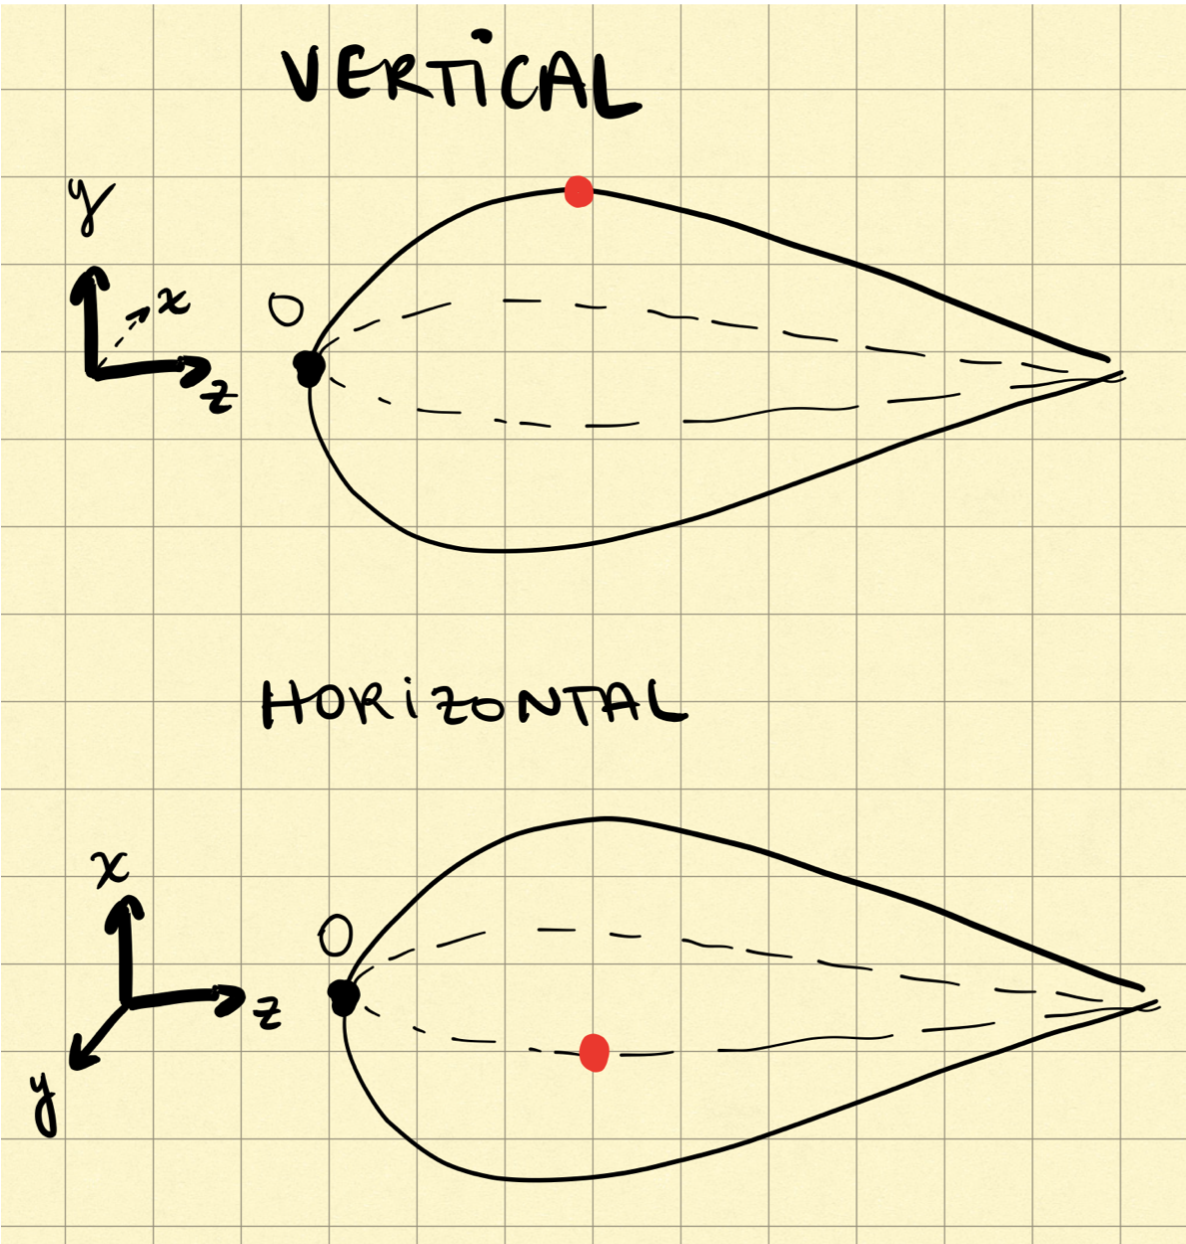 VERTICAL
y
x
O
z
HORIZONTAL
x
O
z
y